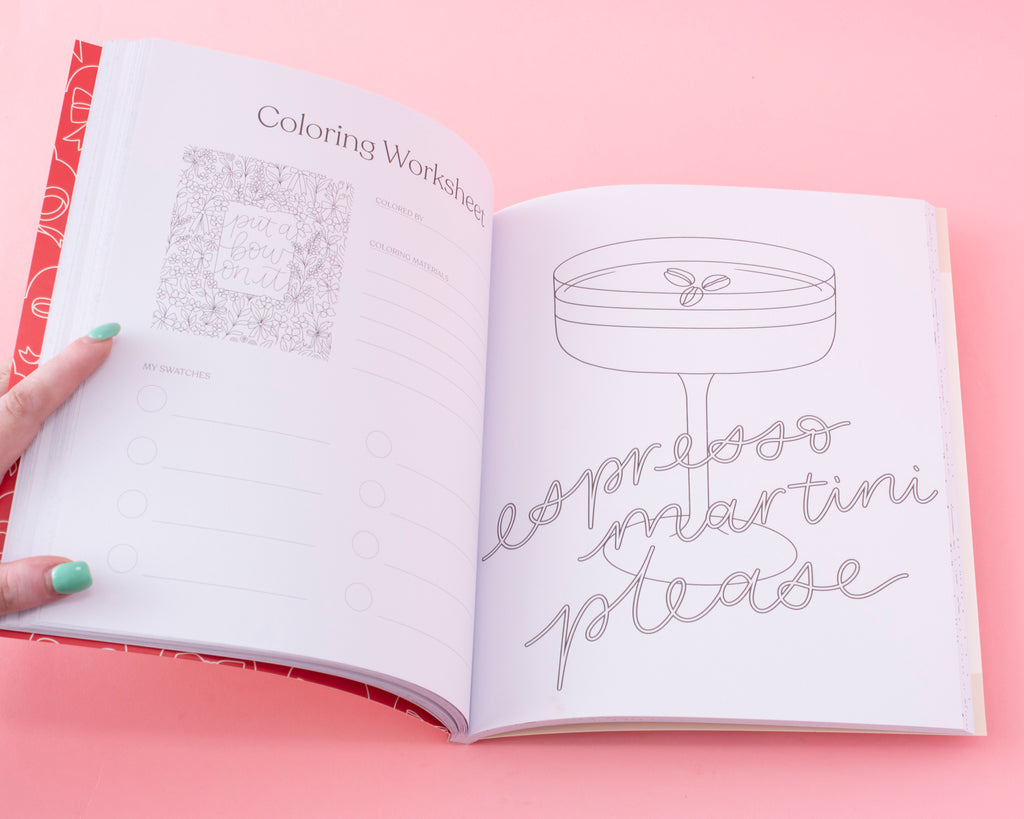 Coloring Worksheet
put a
bow
on it
COLORED BY
COLORING MATERIALS
MY SWATCHES
espresso
martini
please